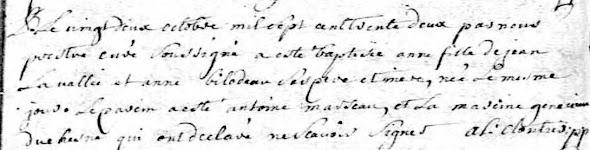 Le vingt deux octobre mil sept cent trente deux par nous
prestre curé soussigné a esté baptisée anne fille de jean
La vallée et anne bilodeau ses pere et mere, née le mesme
jour le parein a esté antoine marseau, et la mareine genevieve
duchesne qui ont declaré ne scavoir signer